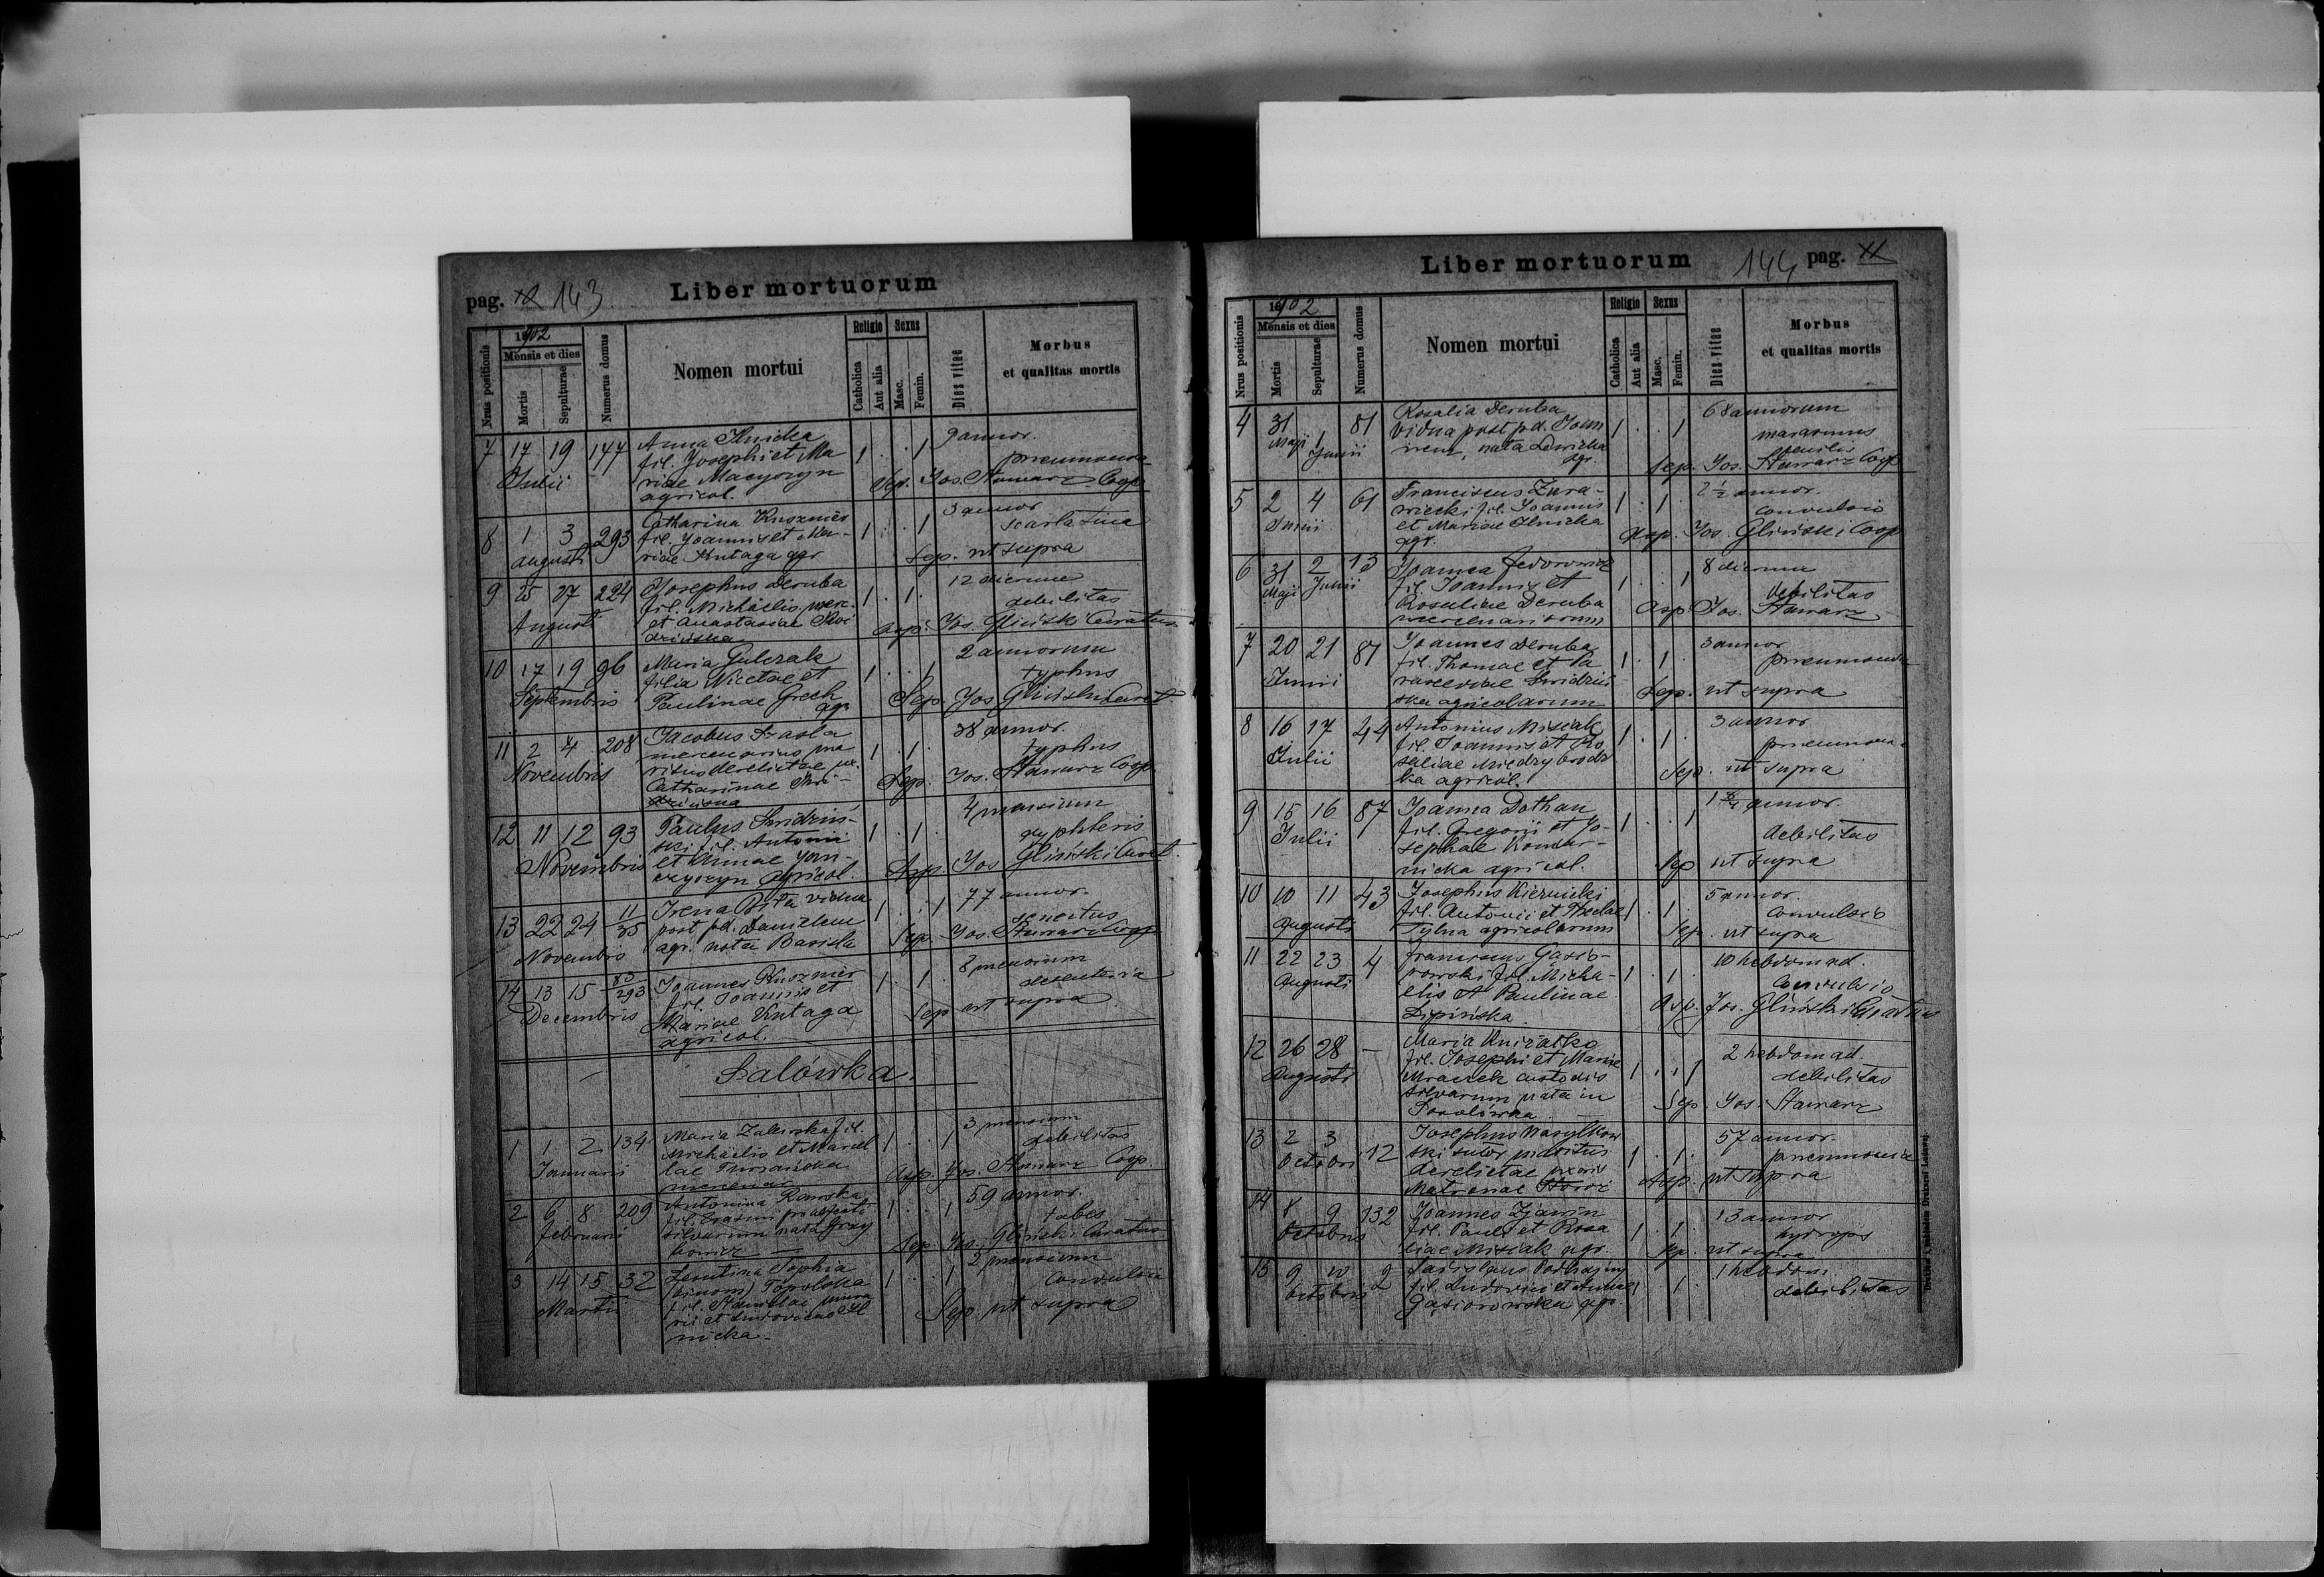 pag. 143
Liber mortuorum
1902
Nrus positionis
Mensis et dies
Mortis
Sepulturae
Numerus domus
Nomen mortui
Religio
Catholica
Aut alia
Sexus
Masc.
Femin.
Dies vitae
Morbus
et qualitas mortis
7 17 19 147 Anna 1 . . 1 9 annor.
Julii fil. Josephi et Ma
riae Maczoryn pneumonia
agricol. Sep. Jos. Stawarz Coop
8 1 3 293 Catharina Kuszmier 1 . . 1 3 annor
Augusti fil. Joannis et Ma- scarlatina
riae Kutaga agr Sep. ut supra
9 25 27 224 Josephus Deruba 1 . 1 . 12 dierum
Augusti fil. Michaelis merc. debilitas
et Anastasiae Asp. Jos. Gliński Curatus
10 17 19 96 Maria Gulczak 1 . . 1 2 annorum
Septembris filia Nicetae et typhus
Paulinae Grech Sep. Jos Gliński Curat
agr
11 2 4 208 Jacobus 1 . 1 . 38 annor.
Novembris mercenarius ma typhus
ritus derelictae ux. Sep. Jos. Stawarz Coop.
Catharinae
12 11 12 93 Paulus Swidziń- 1 . 1 . 4 mensium
Novembris ski fil. Antonii dyphteris
et Annae Jan- Asp. Jos Gliński Curat.
czyszyn agricol.
13 22 24 11/35 Irena vidua 1 . . 1 77 annor.
Novembris post pd. Danielem senectus
agr. nata Sep. Jos. Stawarz Coop
14 13 15 293 Joannes Kuszmier 1 . 1 . 8 mensium
Decembris fil. Joannis et desenteria
Mariae Kutaga Sep ut supra
agricol.
Sałówka.
1 1 2 134 Maria Zalewska fil. 1 . . 1 3 mensium
Januarii Michaelis et Marcel debilitas
lae Asp. Jos. Stawarz Coop.
mercenar
2 6 8 209 Antonina 1 . . 1 59 annor.
Februarii fil. Erasmi praefecti tabes
silvarum nata Sep. Jos. Gliński Curatus
3 14 15 32 Leontina Sophia 1 . . 1 2 mensium
Martii (binom) Topolska convulsio
fil. Stanislai Sep. ut supra
rii et Ludovicae Il
nicka.
Liber mortuorum
144 pag.
1902
Nrus positionis
Mensis et dies
Mortis
Sepulturae
Numerus domus
Nomen mortui
Religio
Catholica
Aut alia
Sexus
Masc.
Femin.
Dies vitae
Morbus
et qualitas mortis
4 31 1 81 Rosalia Deruba 1 . . 1 68 annorum
Maji Junii vidua post pd. Joan marasmus
nem, nata Lewicka senilis
agr. Sep. Jos. Stawarz Coop
5 2 4 61 Franciscus Żura- 1 . 1 . 2 1/2 annor.
Junii wiecki fil. Joannis convulsio
et Mariae Ilnicka Asp. Jos. Gliński Coop
agr.
6 31 2 13 Joanna Fedorowicz 1 . . 1 8 dierum
Maji Junii fil. Joannis et debilitas
Rosaliae Deruba Asp. Jos. Stawarz
mercenariorum
7 20 21 87 Joannes Deruba 1 . 1 . 3 annor
Junii fil. Thomae et Pa pneumonia
rasceviae Swidziń Sep. ut supra
ska agricolarum
8 16 17 244 Antonius Misiak 1 . 1 . 3 annor
Julii fil. Joannis et Ro pneumonia
saliae Międzybrodz Sep. ut supra
ka agricol.
9 15 16 87 Joanna Dothan 1 . . 1 annor.
Julii fil. Gregorii et Jo- debilitas
sephae Komar- Sep ut supra
nicka agricol.
10 10 11 43 Josephus Kiernicki 1 . 1 . 5 annor.
Augusti fil. Antonii et Theclae convulsio
Tylna agricolarum Sep. ut supra
11 22 23 4 Franciscus Gasio- 1 . 1 . 10 hebdomad.
Augusti rowski fil. Micha- convulsio
elis et Paulinae Asp. Jos. Gliński Curatus
Lipińska.
12 26 28 — Maria Kniżatko 1 . . 1 2 hebdomad.
Augusti fil. Josephi et Mariae debilitas
Mraczek custodis Sep. Jos. Stawarz
silvarum nata in
Sosolówka.
13 2 3 12 Josephus Wasylkow 1 . 1 . 57 annor.
Octobris ski sutor maritus pneumonia
derelictae uxoris Asp. ut supra
Matronae
14 8 9 132 Joannes Zjawin 1 . 1 . 13 annor
Octobris fil. Pauli et Rosa hydrops
liae Misiak agr. Sep. ut supra
15 9 10 2 Ladislaus Podhajny 1 . 1 . 1 hebdom
Octobris 2 fil. Ludovici et Annae debilitas
Gąsiorowska agr.